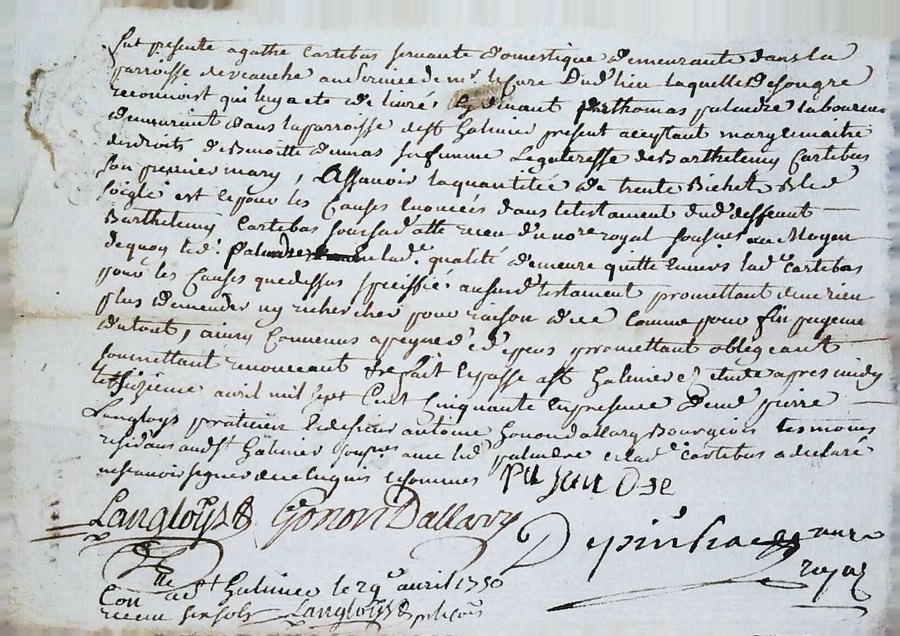 fut presente agathe Cartebas servante domestique demeurante dans la
parroisse de veauche au service de mr. le Cure dud. lieu laquelle de son gre
reconnoist qui luy a ete de livré, par thomas palandre laboureur
demeurant dans la parroisse de st Galmier present aceptant mary et maitre
des droits de Benoitte dumas sa femme Legateresse de Barthelemy Cartebas
son premier mary, assavoir la quantitée de trente Bichets Bled
soigle et ce pour les Causes enoncées dans le testament dud. deffeunt
Barthelemy Cartebas receu dud. nore royal sousne. au Moyen
de quoy led. palandre en lad.e qualité demeure quitte envers lad. Cartebas
pour les Causes que dessus speciffié aususd. testament promettant de ne rien
plus demender ny rechercher pour raison d'ice Comme pour fin
du tout, ainsy Convenus a peyne de d'epens promettant obligeant
soumettant renonceant fait et passe a st Galmier etude apres midy
le sizieme avril mil sept Cent Cinquante en presence de me pierre
Langloys praticien et de sieur antoine Gonon dallary Bourgeois tesmoins
residans aud. st Galmier sousnes avec led. palandre et lad. Cartebas a declaré
ne scavoir signer de ce enquis et sommes
LANGLOŸS Gonon Dallary
Depinhac nore
royal
Con.lle a st Galmier le 29e avril 1750
receu six sols LANGLOŸS